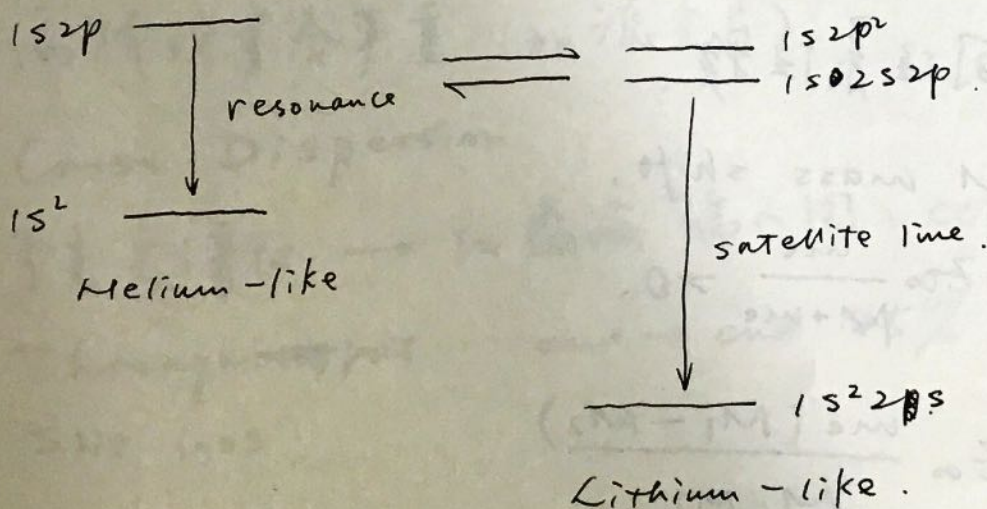 1s2p
resonance
1s²
Helium-like
1s2p²
1s2s2p.
satellite line.
1s²2s
Lithium-like.